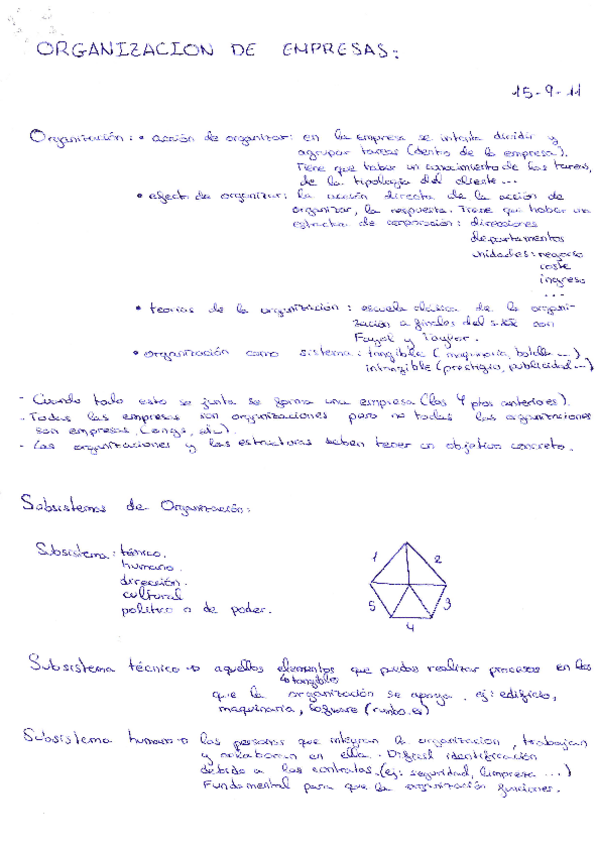 ORGANIZACION DE EMPRESAS:
15-9-11
Organización: • acción de organizar: en la empresa se intenta dividir y
agrupar tareas (dentro de la empresa).
Tiene que haber un conocimiento de las tareas,
de la tipología del cliente...
• efecto de organizar: la acción directa de la acción de
organizar, la respuesta. Tiene que haber una
estructura de corporación: direcciones
departamentos
unidades: negocio
coste
ingreso
...
• teorías de la organización: escuela clásica de la organi-
zación a finales del s.XIX son
Fayol y Taylor.
• organización como sistema: tangible (maquinaria, botella...)
intangible (prestigio, publicidad...)
- Cuando todo esto se junta se forma una empresa (los 4 ptos anteriores).
- Todas las empresas son organizaciones pero no todas las organizaciones
son empresas. (ongs, etc).
- Las organizaciones y las estructuras deben tener un objetivo concreto.
Subsistemas de Organización:
Subsistema: técnico.
humano.
dirección.
cultural
político o de poder.
1 2
5 3
4
Subsistema técnico → aquellos elementos que puedas realizar procesos en los
↳ tangibles
que la organización se apoya. ej: edificio,
maquinaria, software
Subsistema humano → las personas que integran la organización, trabajan
y colaboran en ella. Difícil identificación
debido a las contratas. (ej: seguridad, limpieza ...)
Fundamental para que la organización funcione.